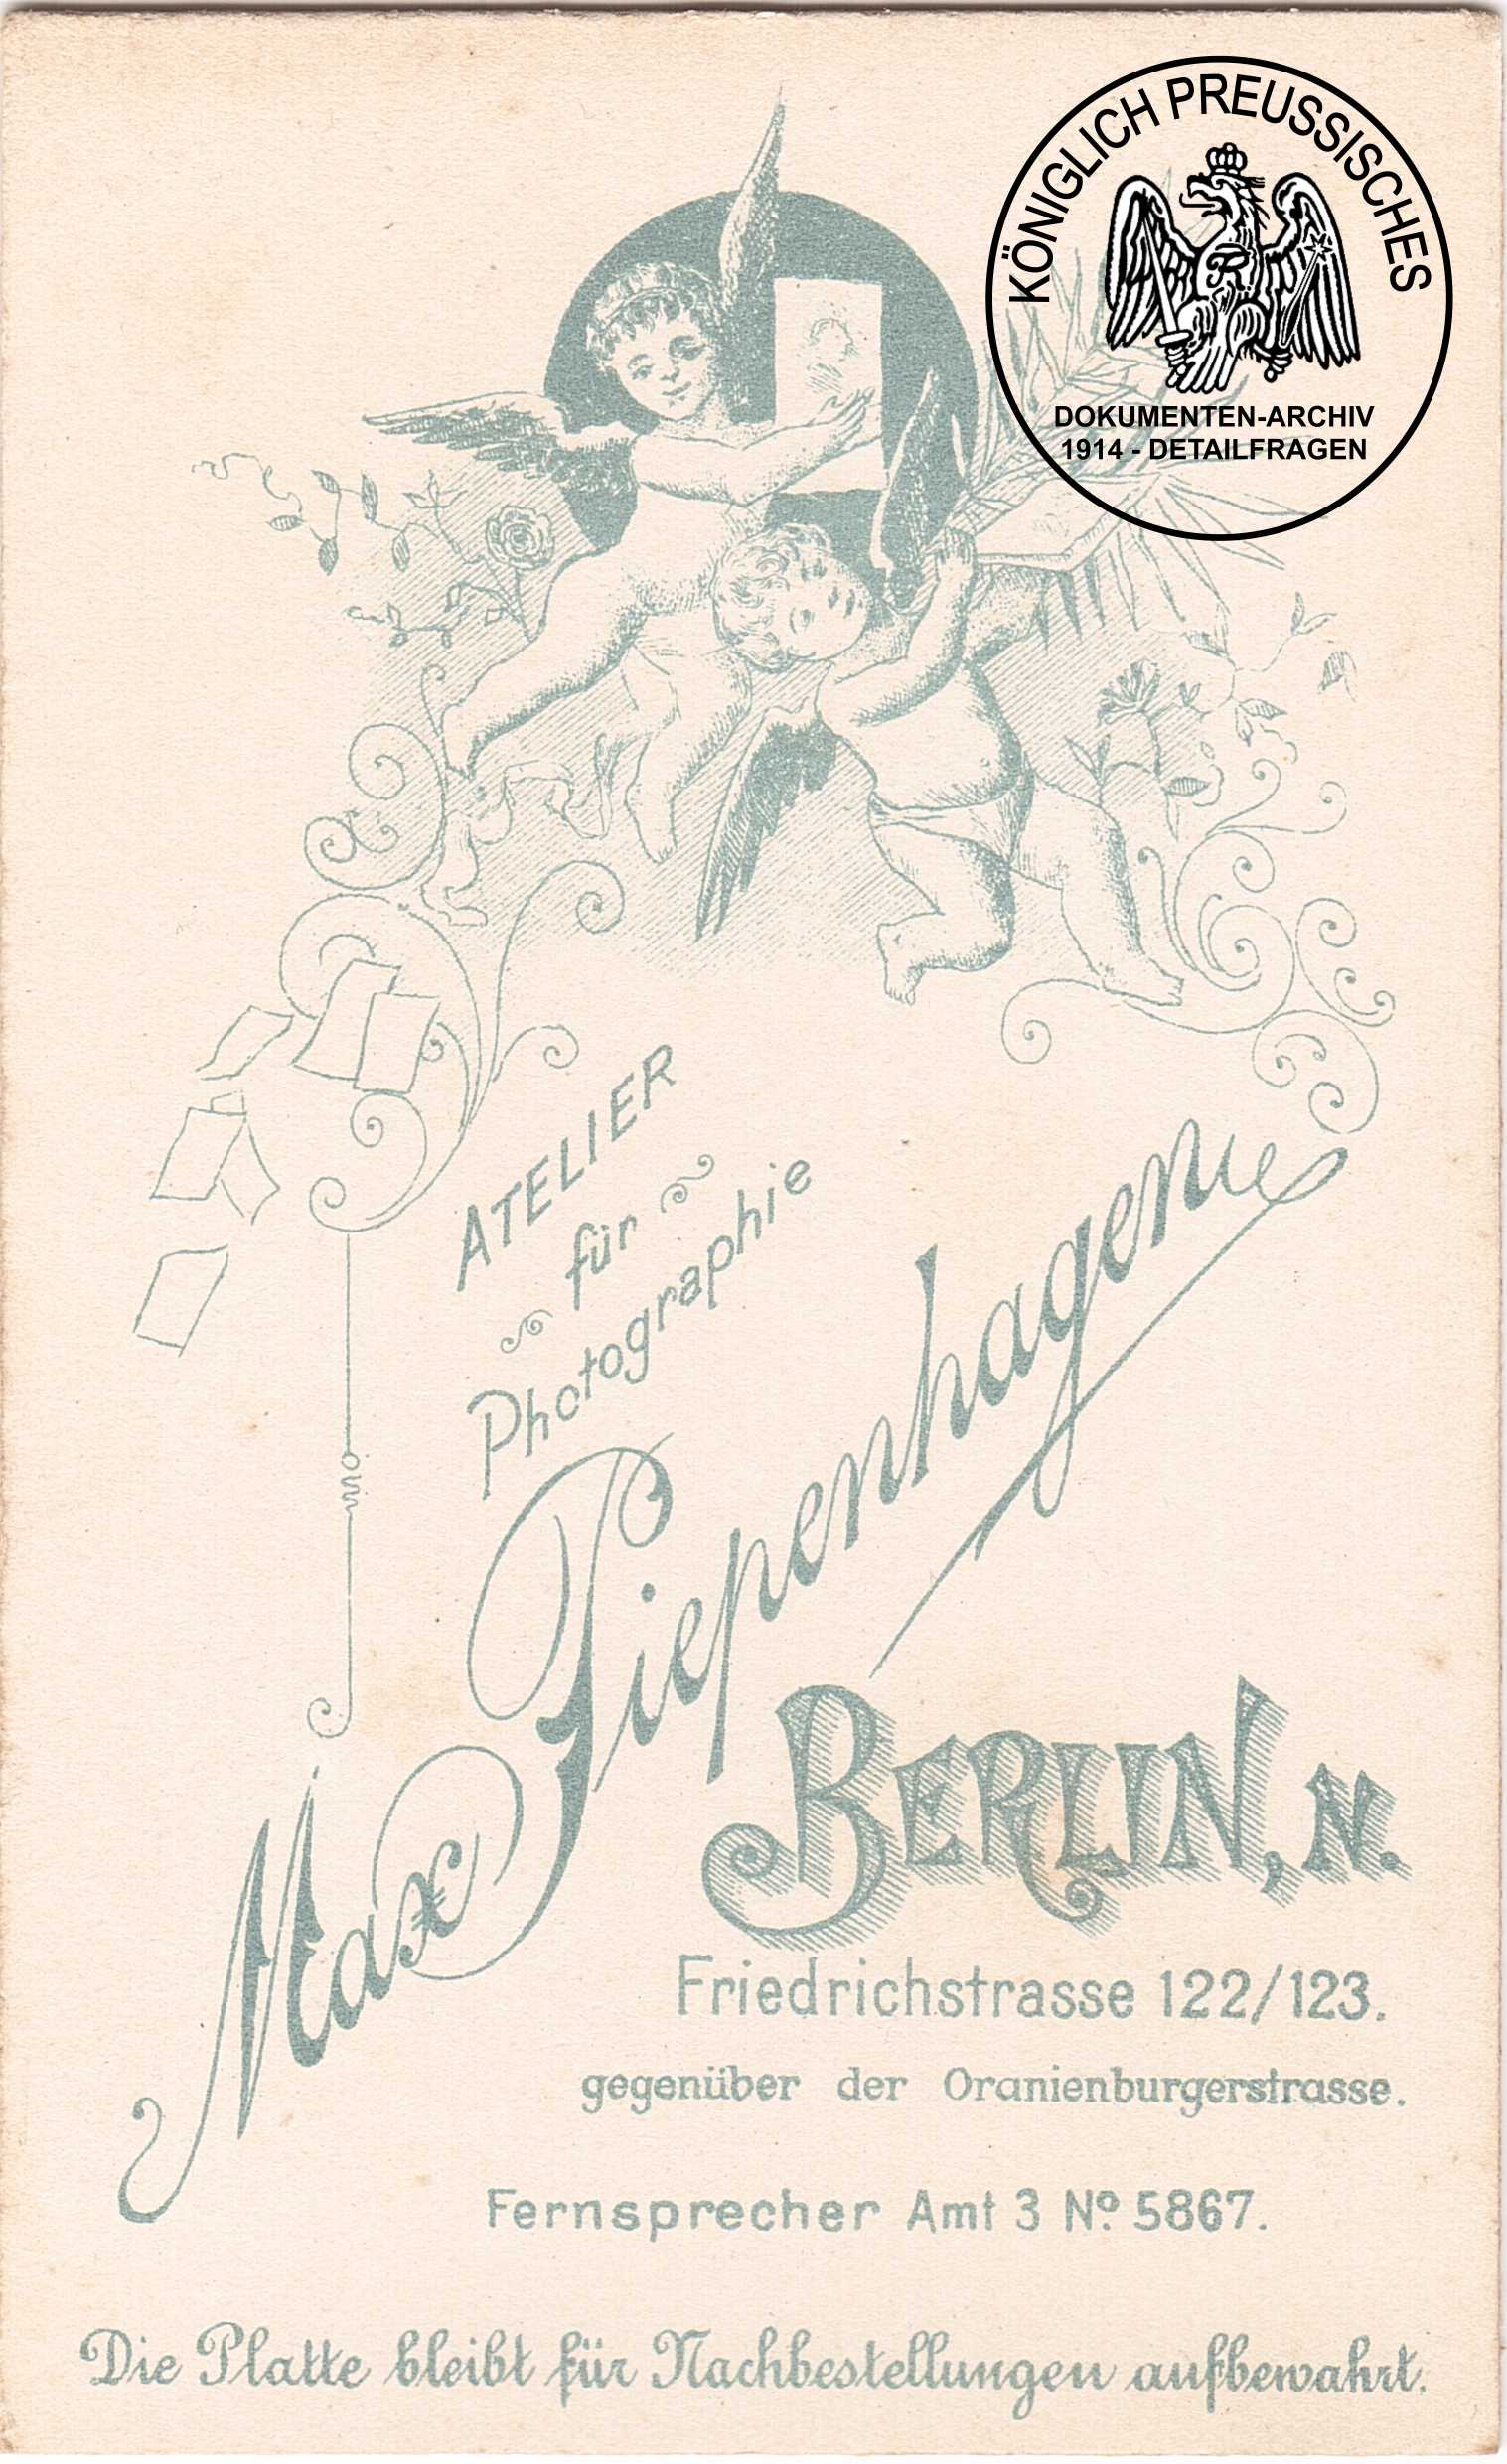 KÖNIGLICH PREUSSISCHES
DOKUMENTEN-ARCHIV
1914 - DETAILFRAGEN
ATELIER
für
Photographie
Max Piepenhagen
BERLIN, N.
Friedrichstrasse 122/123.
gegenüber der Oranienburgerstrasse.
Fernsprecher Amt 3 No. 5867.
Die Platte bleibt für Nachbestellungen aufbewahrt.